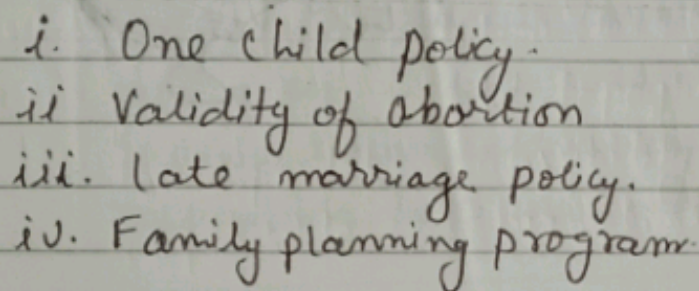 i. One child policy.
ii Validity of abortion
iii. late marriage policy.
iv. Family planning program.